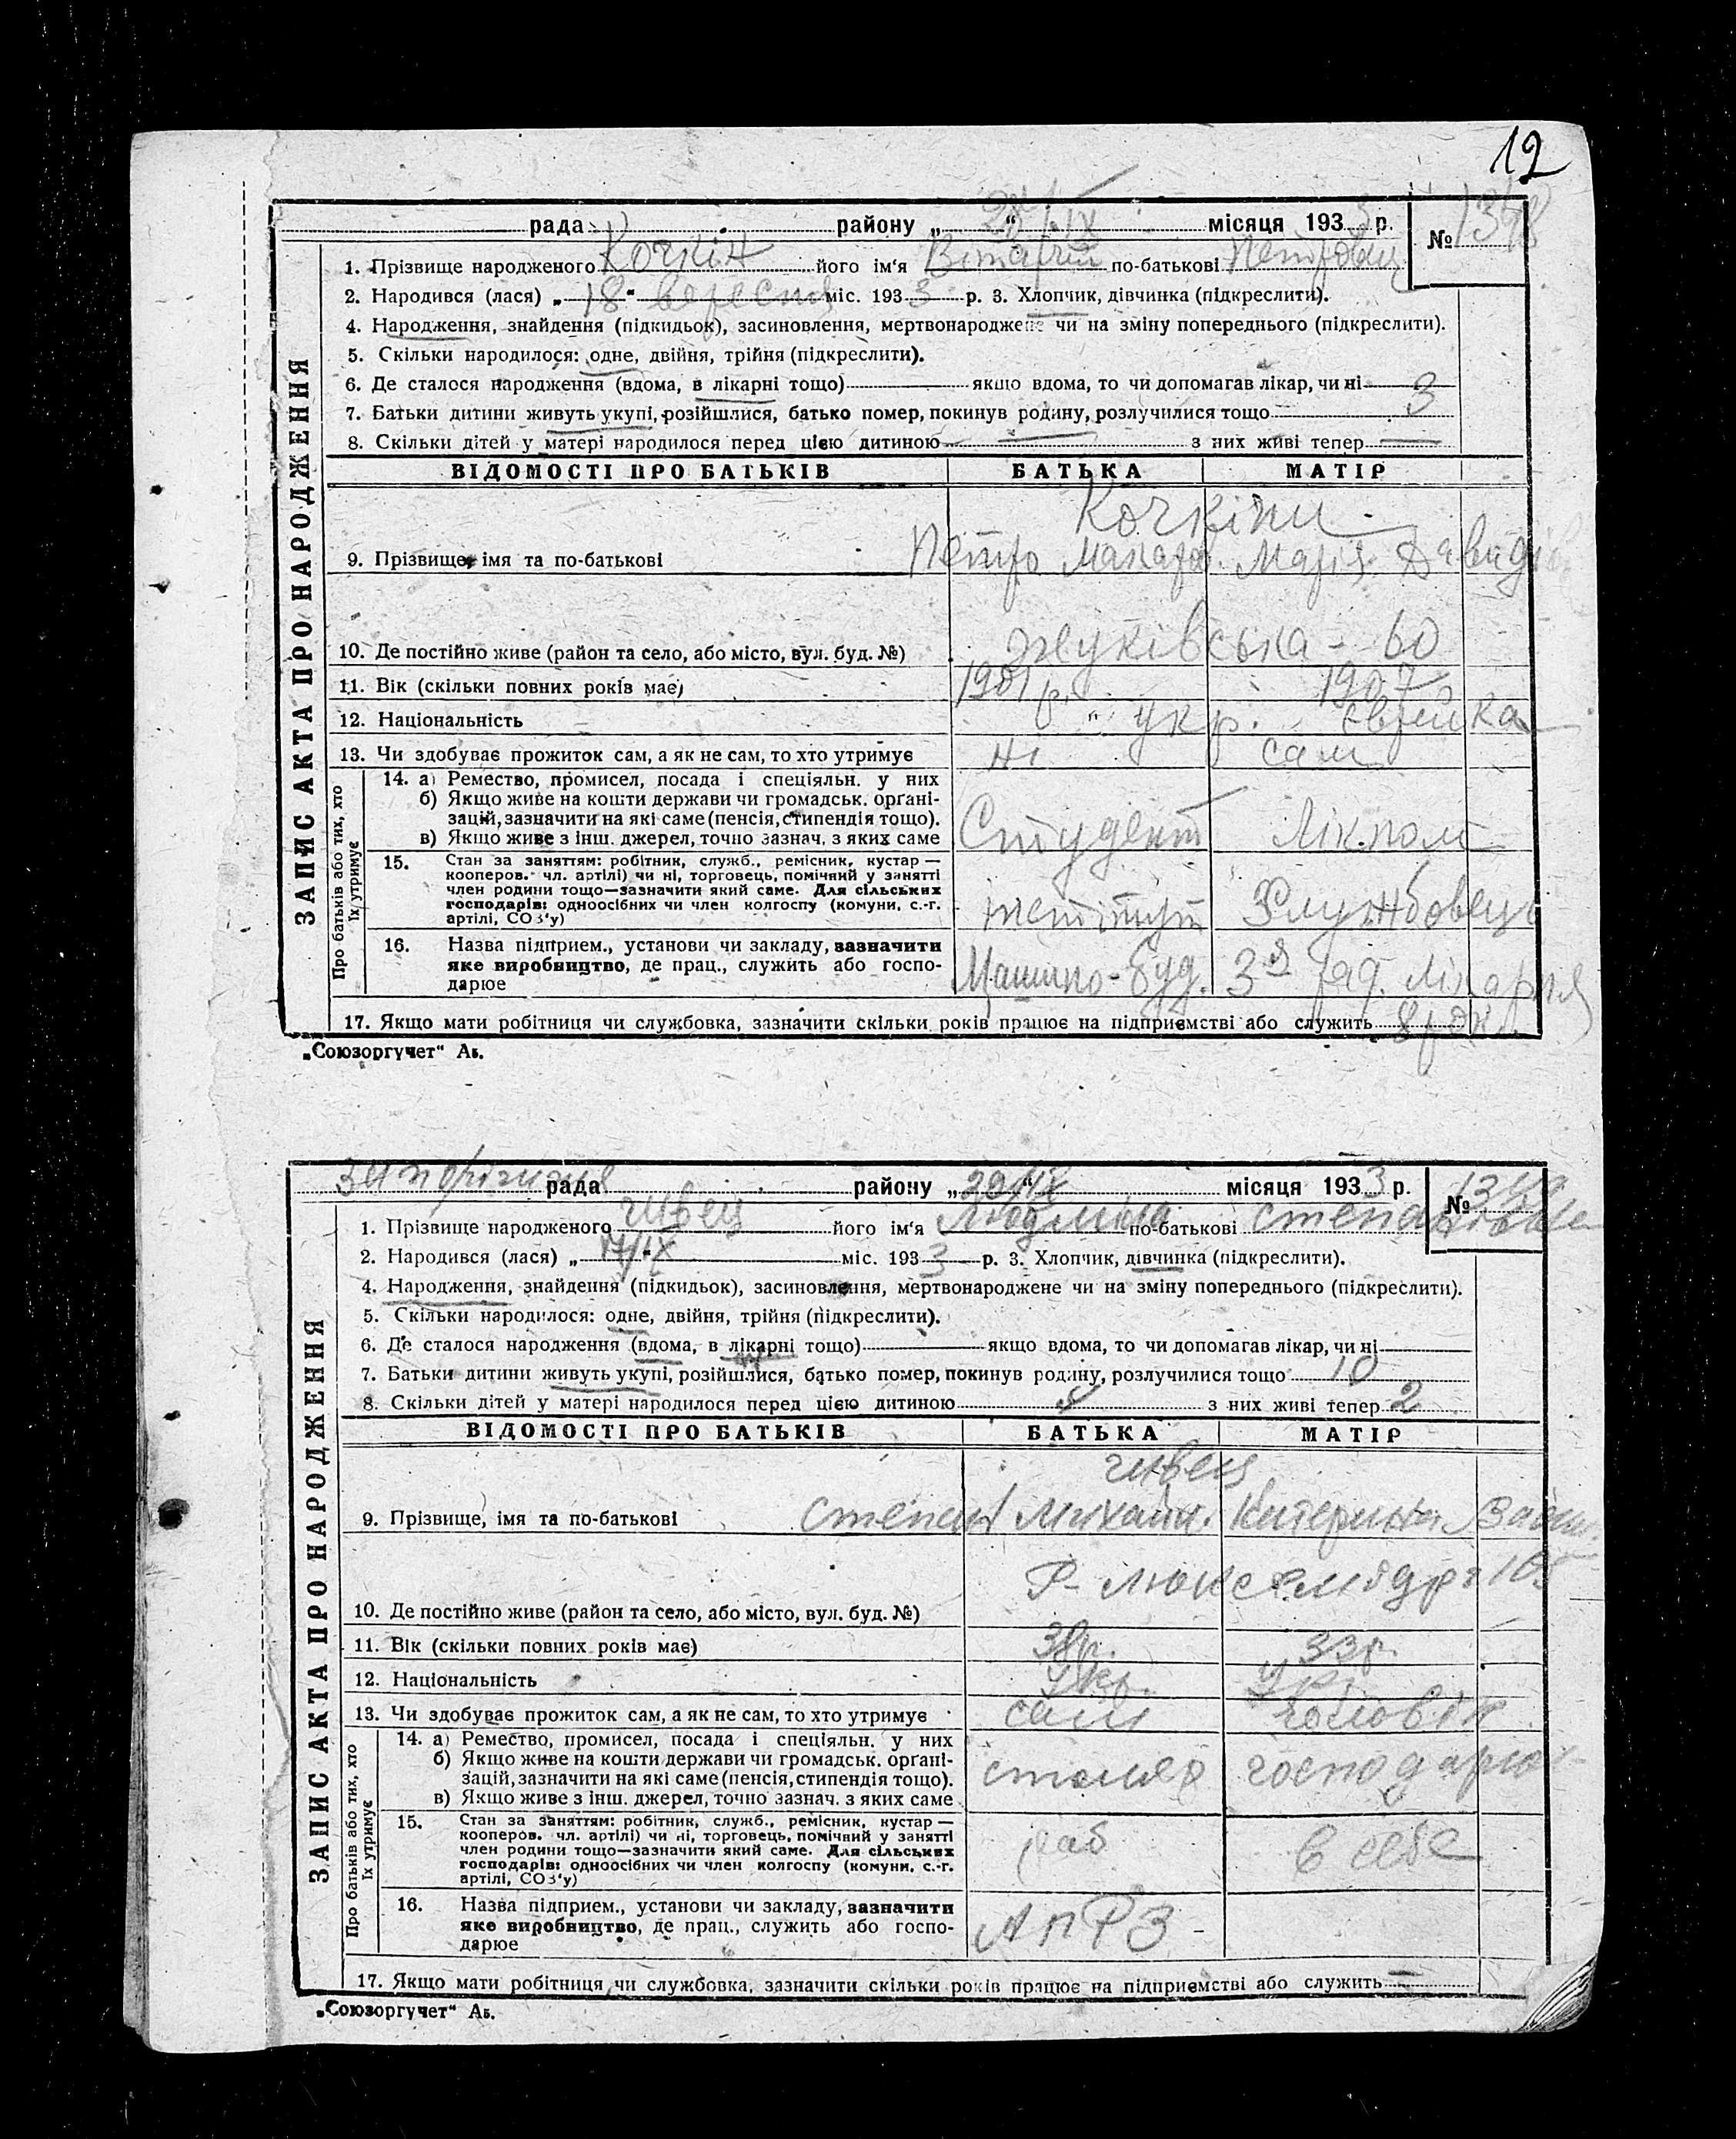 12
рада району „ 28/IX “ місяця 1933 р. № 1348
1. Прізвище народженого Кочкін його ім'я Віталій по-батькові Петрович
2. Народився (лася) „ 18 “ вересня міс. 1933 р. 3. Хлопчик, дівчинка (підкреслити).
4. Народження, знайдення (підкидьок), засиновлення, мертвонароджене чи на зміну попереднього (підкреслити).
5. Скільки народилося: одне, двійня, трійня (підкреслити).
6. Де сталося народження (вдома, в лікарні тощо) якщо вдома, то чи допомагав лікар, чи ні
7. Батьки дитини живуть укупі, розійшлися, батько помер, покинув родину, розлучилися тощо 3
8. Скільки дітей у матері народилося перед цією дитиною — з них живі тепер —
ЗАПИС АКТА ПРО НАРОДЖЕННЯ
ВІДОМОСТІ ПРО БАТЬКІВ БАТЬКА МАТІР
Кочкіни
9. Прізвище, імя та по-батькові Петро Макаров. Марія Давидів
10. Де постійно живе (район та село, або місто, вул. буд. №) Жуківська - 60
11. Вік (скільки повних років має) 1901 р. 1907
12. Національність укр. єврейка
13. Чи здобуває прожиток сам, а як не сам, то хто утримує ні сам
Про батьків або тих, хто їх утримує
14. а) Ремество, промисел, посада і спеціяльн. у них
б) Якщо живе на кошти держави чи громадськ. органі-
зацій, зазначити на які саме (пенсія, стипендія тощо).
в) Якщо живе з інш. джерел, точно зазнач. з яких саме Студент Лікпом
15. Стан за заняттям: робітник, служб., ремісник, кустар —
кооперов. чл. артілі) чи ні, торговець, помічний у занятті
член родини тощо—зазначити який саме. Для сільських
господарів: одноосібних чи член колгоспу (комуни, с.-г.
артілі, СОЗ'у) Інститут Службовець
16. Назва підприєм., установи чи закладу, зазначити
яке виробництво, де прац., служить або госпо-
дарює Машино-буд. 3я рад. лікарня
17. Якщо мати робітниця чи службовка, зазначити скільки років працює на підприємстві або служить 8 рок.
„Союзоргучет“ Аб.
Запоріжжя рада району „ 29/IX “ місяця 1933 р. №
1. Прізвище народженого Швец його ім'я Людмила по-батькові Степановна
2. Народився (лася) „ 17/IX “ міс. 1933 р. 3. Хлопчик, дівчинка (підкреслити).
4. Народження, знайдення (підкидьок), засиновлення, мертвонароджене чи на зміну попереднього (підкреслити).
5. Скільки народилося: одне, двійня, трійня (підкреслити).
6. Де сталося народження (вдома, в лікарні тощо) якщо вдома, то чи допомагав лікар, чи ні
7. Батьки дитини живуть укупі, розійшлися, батько помер, покинув родину, розлучилися тощо 10
8. Скільки дітей у матері народилося перед цією дитиною з них живі тепер 2
ЗАПИС АКТА ПРО НАРОДЖЕННЯ
ВІДОМОСТІ ПРО БАТЬКІВ БАТЬКА МАТІР
Швец
9. Прізвище, імя та по-батькові Степан Михайл. Катерина
Р- Люксембург 105
10. Де постійно живе (район та село, або місто, вул. буд. №)
11. Вік (скільки повних років має) 38р. 33р.
12. Національність Укр. Укр.
13. Чи здобуває прожиток сам, а як не сам, то хто утримує сам чоловік
Про батьків або тих, хто їх утримує
14. а) Ремество, промисел, посада і спеціяльн. у них
б) Якщо живе на кошти держави чи громадськ. органі-
зацій, зазначити на які саме (пенсія, стипендія тощо).
в) Якщо живе з інш. джерел, точно зазнач. з яких саме столяр господарює
15. Стан за заняттям: робітник, служб., ремісник, кустар —
кооперов. чл. артілі) чи ні, торговець, помічний у занятті
член родини тощо—зазначити який саме. Для сільських
господарів: одноосібних чи член колгоспу (комуни, с.-г.
артілі, СОЗ'у) раб в себе
16. Назва підприєм., установи чи закладу, зазначити
яке виробництво, де прац., служить або госпо-
дарює АПРЗ -
17. Якщо мати робітниця чи службовка, зазначити скільки років працює на підприємстві або служить —
„Союзоргучет“ Аб.